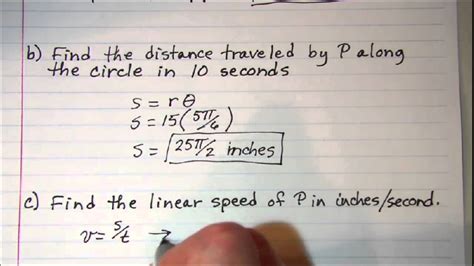 b) Find the distance traveled by P along
the circle in 10 seconds
s = rθ
s = 15(5π/6)
s = 25π/2 inches
c) Find the linear speed of P in inches/second.
v = s/t →